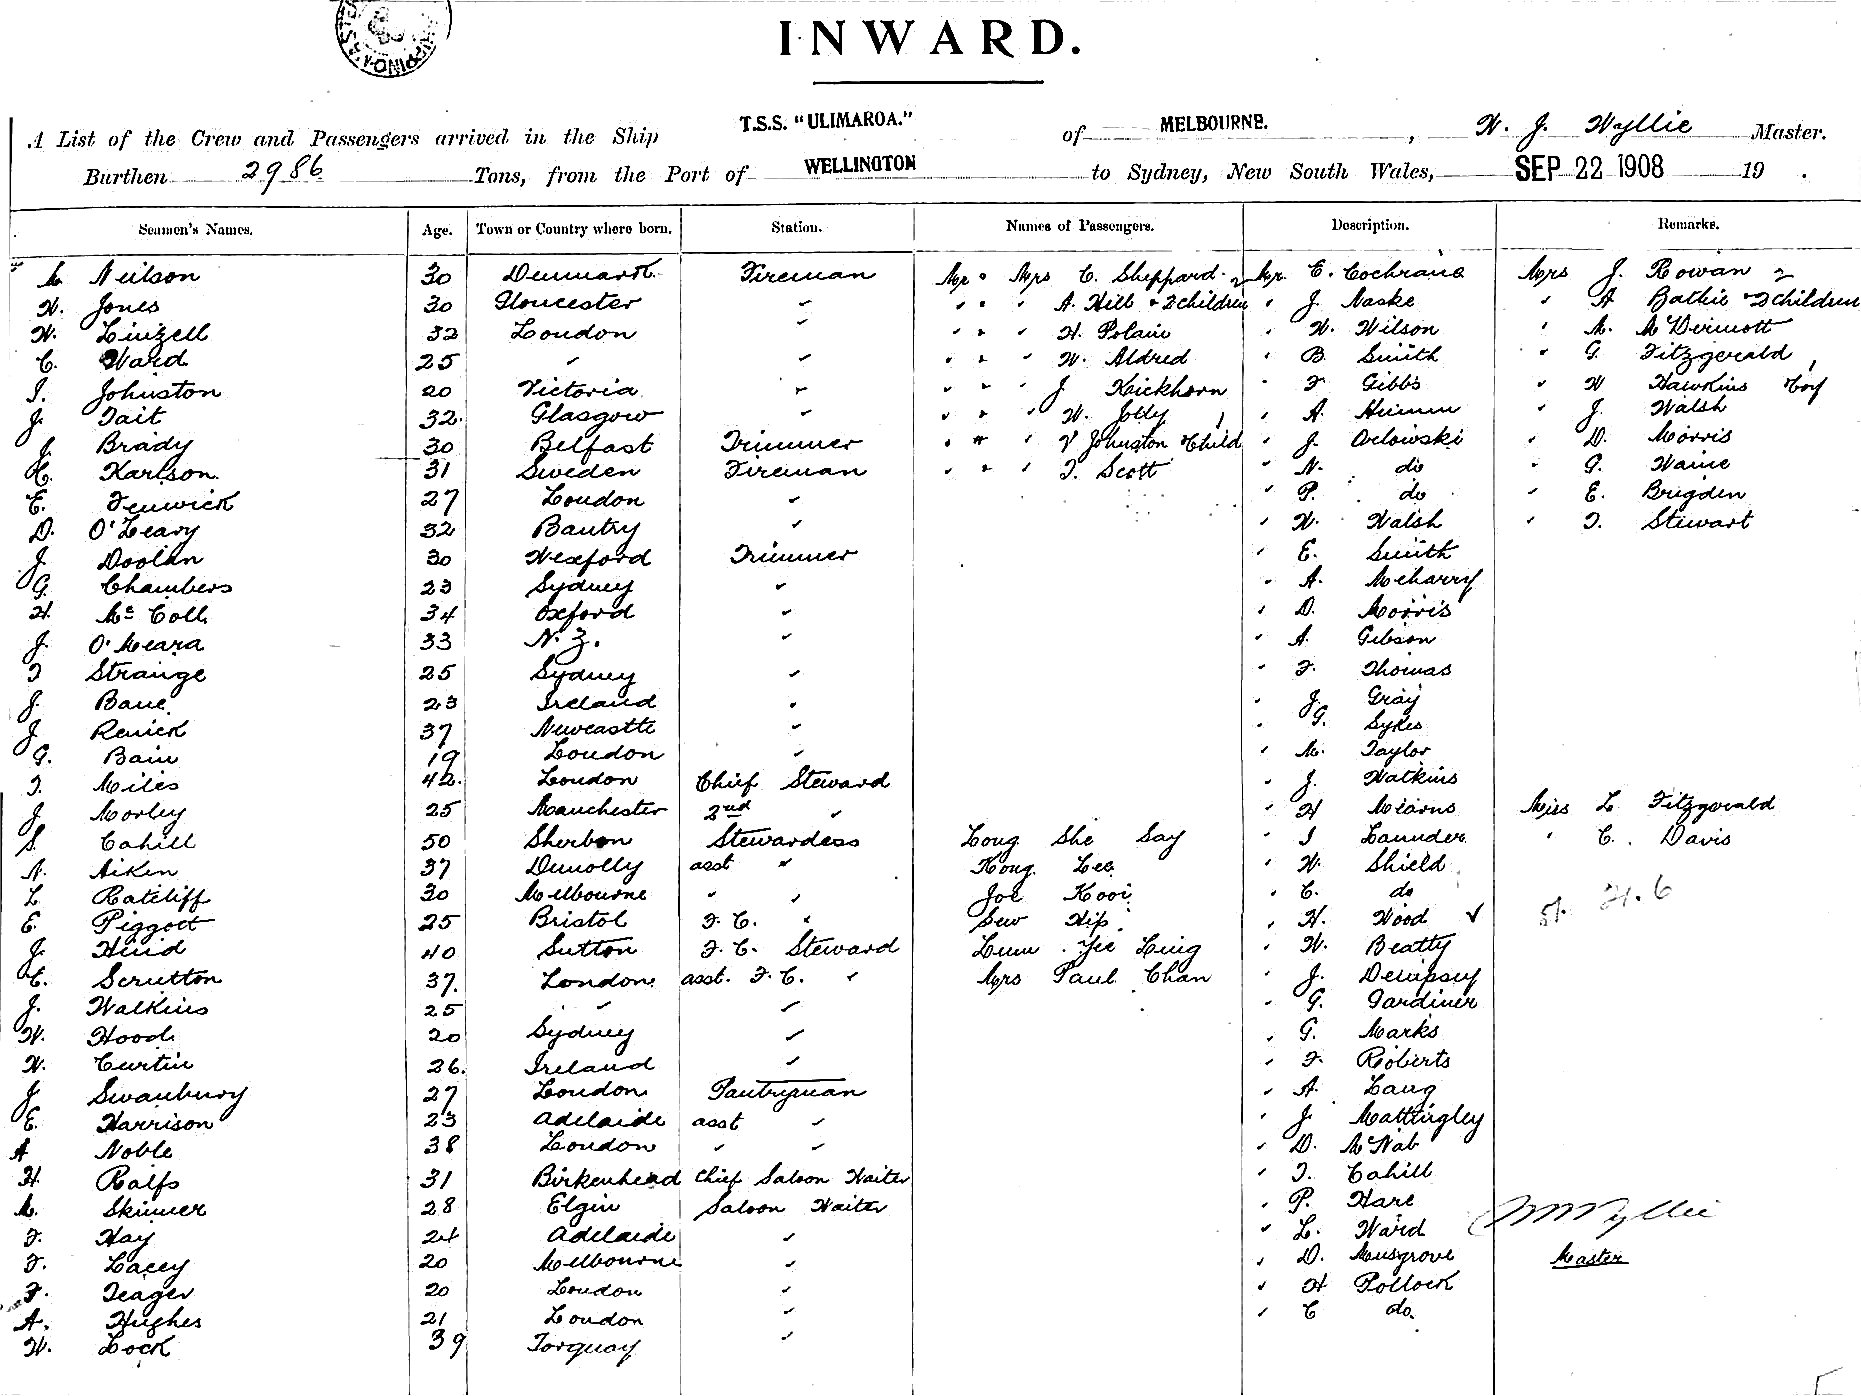 INWARD.
A List of the Crew and Passengers arrived in the Ship T.S.S. "ULIMAROA." of MELBOURNE. , W. J. Wyllie Master.
Burthen 2986 Tons, from the Port of WELLINGTON to Sydney, New South Wales, SEP 22 1908 19 .
Seamen's Names. Age. Town or Country where born. Station. Names of Passengers. Description. Remarks.
M Neilson 30 Denmark Fireman Mr " Mrs C. Sheppard Mr. E. Cochrane Mrs J. Rowan
W. Jones 30 Gloucester " " " " A. Hill & 2 children " J. Naske " A Bathie & 2 children
W. Linzell 32 London " " " " H. Polain " W. Wilson " M. McDermott
C. Ward 25 " " " " " W. Aldred " B. Smith " G. Fitzgerald
J. Johnston 20 Victoria " " " " J Keickhorn " F Gibbs " W Hawkins
J. Tait 32 Glasgow " " " " W. Jolly " A. " J. Walsh
J. Brady 30 Belfast Trimmer " " " V Johnston & Child " J. Orlowski " D. Morris
H. Karlson 31 Sweden Fireman " " " T. Scott " N. do " G. Waine
E. Fenwick 27 London " " P. do " E. Brigden
D. O'Leary 32 Bantry " " W. Walsh " T. Stewart
J. Doolan 30 Wexford Trimmer " E. Smith
G. Chambers 23 Sydney " " A. Meharry
H. McColl 34 Oxford " " D. Morris
J. O'Meara 33 N.Z. " " A. Gibson
T Strange 25 Sydney " " F. Thomas
J. Bane 23 Ireland " " J. Gray
J Renick 37 Newcastle " G. Sykes
G. Bain 19 London " " M. Taylor
T. Miles 42 London Chief Steward " J. Watkins
J Morley 25 Manchester 2nd " " H Mearns Miss L Fitzgerald
S. Cahill 50 Sherbon Stewardess Long She Say " J Launder " C. Davis
A. Aiken 37 Dunolly asst " Kong Lee " W. Shield
L Ratcliff 30 Melbourne " " Joe Kooi " C. do
E. Piggott 25 Bristol F. C. " Sew Hip " H. Wood
J. Hind 40 Sutton F. C. Steward Lum Yee Ling " W. Beatty
C. Scrutton 37 London asst. F. C. " Mrs Paul Chan " J. Dempsey
J. Walkins 25 " " " G. Gardiner
W. Hood 20 Sydney " " G. Marks
W. Curtin 26. Ireland " " F. Roberts
J Swanbury 27 London Pantryman " A. Lang
E. Harrison 23 Adelaide asst " " J. Mattingley
A Noble 38 London " " " D. McNab
H. Ralfs 31 Birkenhead Chief Saloon Waiter " T. Cahill
M. Skinner 28 Elgin Saloon Waiter " P. Hare
F. Hay 24 Adelaide " " L. Ward Wyllie
F. Lacey 20 Melbourne " " D. Musgrove Master
F. Teager 20 London " " H Pollock
A. Hughes 21 London " " C do.
W. Lock 39 Torquay "